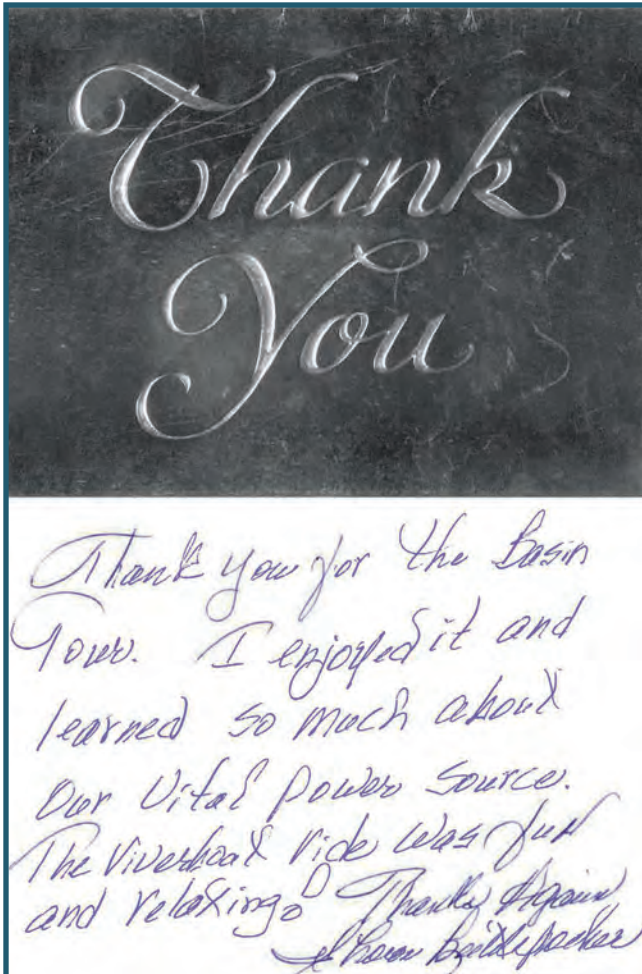 Thank
You
Thank you for the Basin
Tour. I enjoyed it and
learned so much about
our vital power source.
The riverboat ride was fun
and relaxing. Thanks Again
Sharon